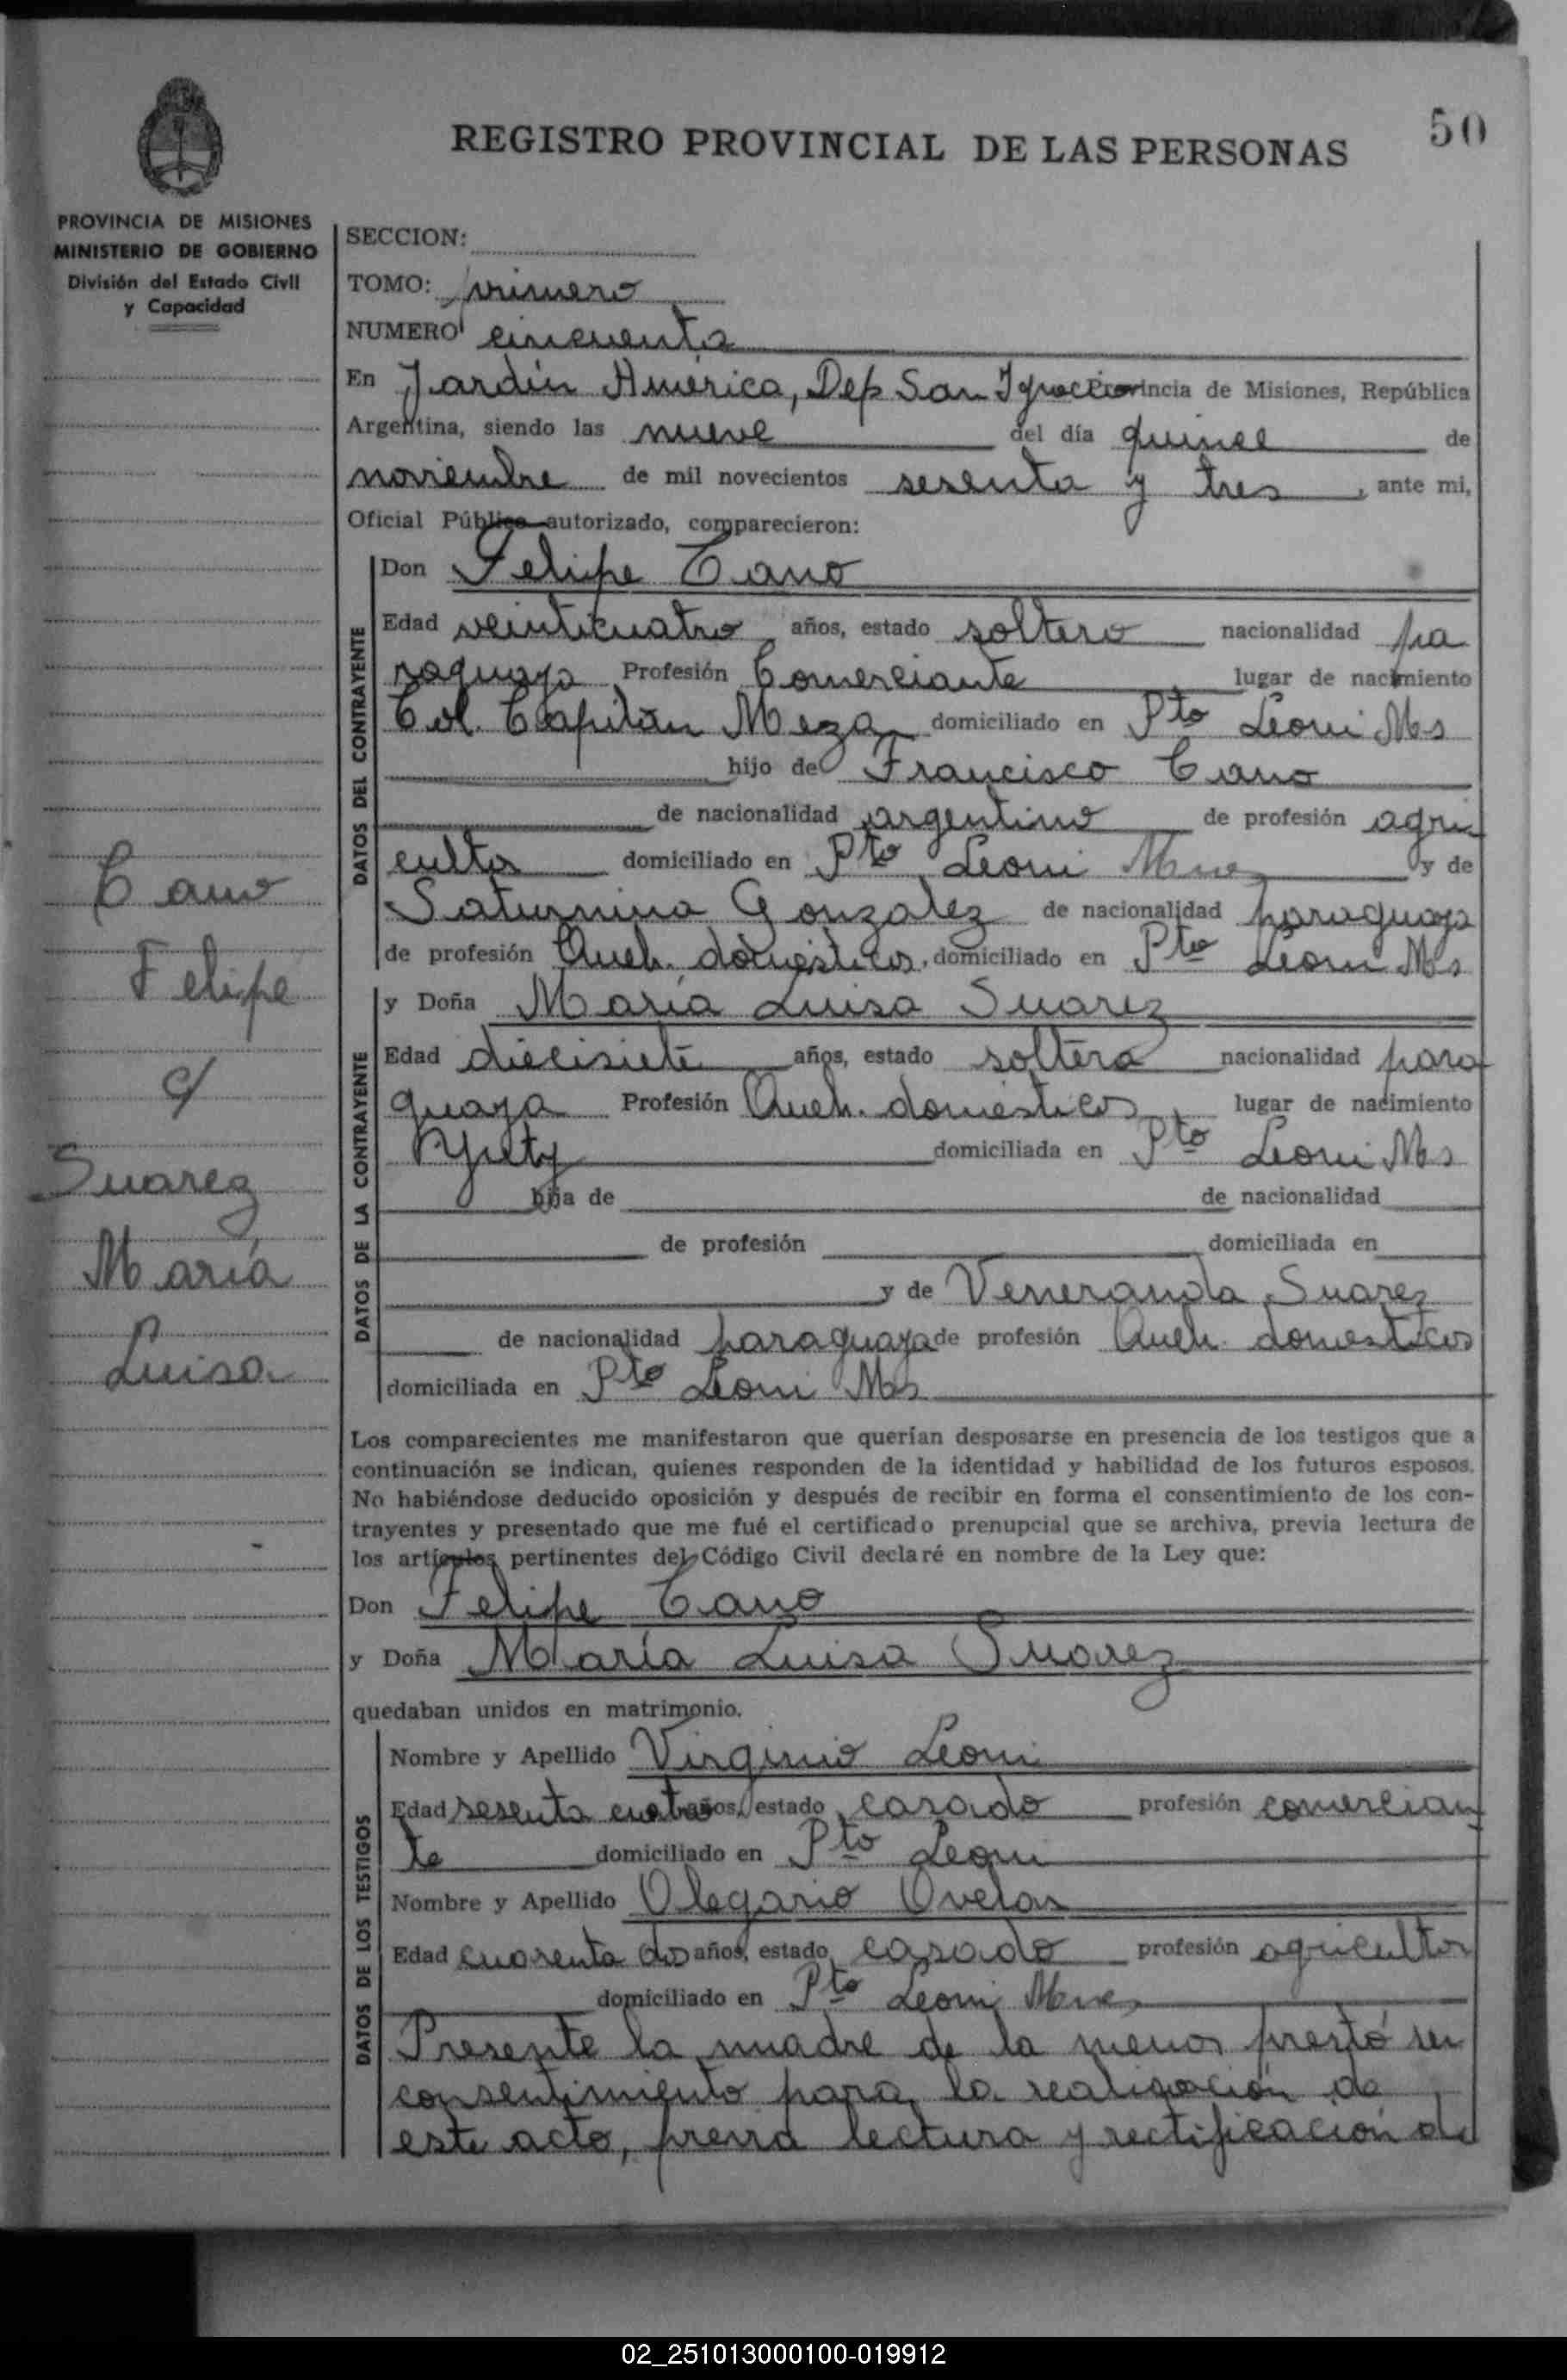 50
REGISTRO PROVINCIAL DE LAS PERSONAS
PROVINCIA DE MISIONES
MINISTERIO DE GOBIERNO
División del Estado Civil
y Capacidad
SECCION:
TOMO: primero
NUMERO cincuenta
En Jardín América, Dep San Ignacio Provincia de Misiones, República
Argentina, siendo las nueve del día quince de
noviembre de mil novecientos sesenta y tres, ante mi,
Oficial Público autorizado, comparecieron:
DATOS DEL CONTRAYENTE
Don Felipe Cano
Edad veinticuatro años, estado soltero nacionalidad pa
raguaya Profesión Comerciante lugar de nacimiento
Col. Capitán Meza domiciliado en Pto Leoni Ms
hijo de Francisco Cano
de nacionalidad argentino de profesión agri
cultor domiciliado en Pto Leoni Mnes y de
Saturnina Gonzalez de nacionalidad paraguaya
de profesión Queh. domésticos, domiciliado en Pto Leoni Ms
DATOS DE LA CONTRAYENTE
y Doña María Luisa Suarez
Edad diecisiete años, estado soltera nacionalidad para
guaya Profesión Queh. domesticos, lugar de nacimiento
domiciliada en Pto Leoni Ms
hija de de nacionalidad
de profesión domiciliada en
y de Veneranda Suarez
de nacionalidad paraguaya de profesión Queh. domesticos
domiciliada en Pto Leoni Ms
Cano
Felipe
c/
Suarez
María
Luisa
Los comparecientes me manifestaron que querían desposarse en presencia de los testigos que a
continuación se indican, quienes responden de la identidad y habilidad de los futuros esposos.
No habiéndose deducido oposición y después de recibir en forma el consentimiento de los con-
trayentes y presentado que me fué el certificado prenupcial que se archiva, previa lectura de
los artículos pertinentes del Código Civil declaré en nombre de la Ley que:
Don Felipe Cano
y Doña María Luisa Suarez
quedaban unidos en matrimonio.
DATOS DE LOS TESTIGOS
Nombre y Apellido Virginio Leoni
Edad sesenta cuatro años, estado casado profesión comercian
te domiciliado en Pto Leoni
Nombre y Apellido Olegario Ovelar
Edad cuarenta dos años, estado casado profesión agricultor
domiciliado en Pto Leoni Mnes
Presente la madre de la menor prestó su
consentimiento para la realización de
este acto, previa lectura y rectificación de
02_251013000100-019912